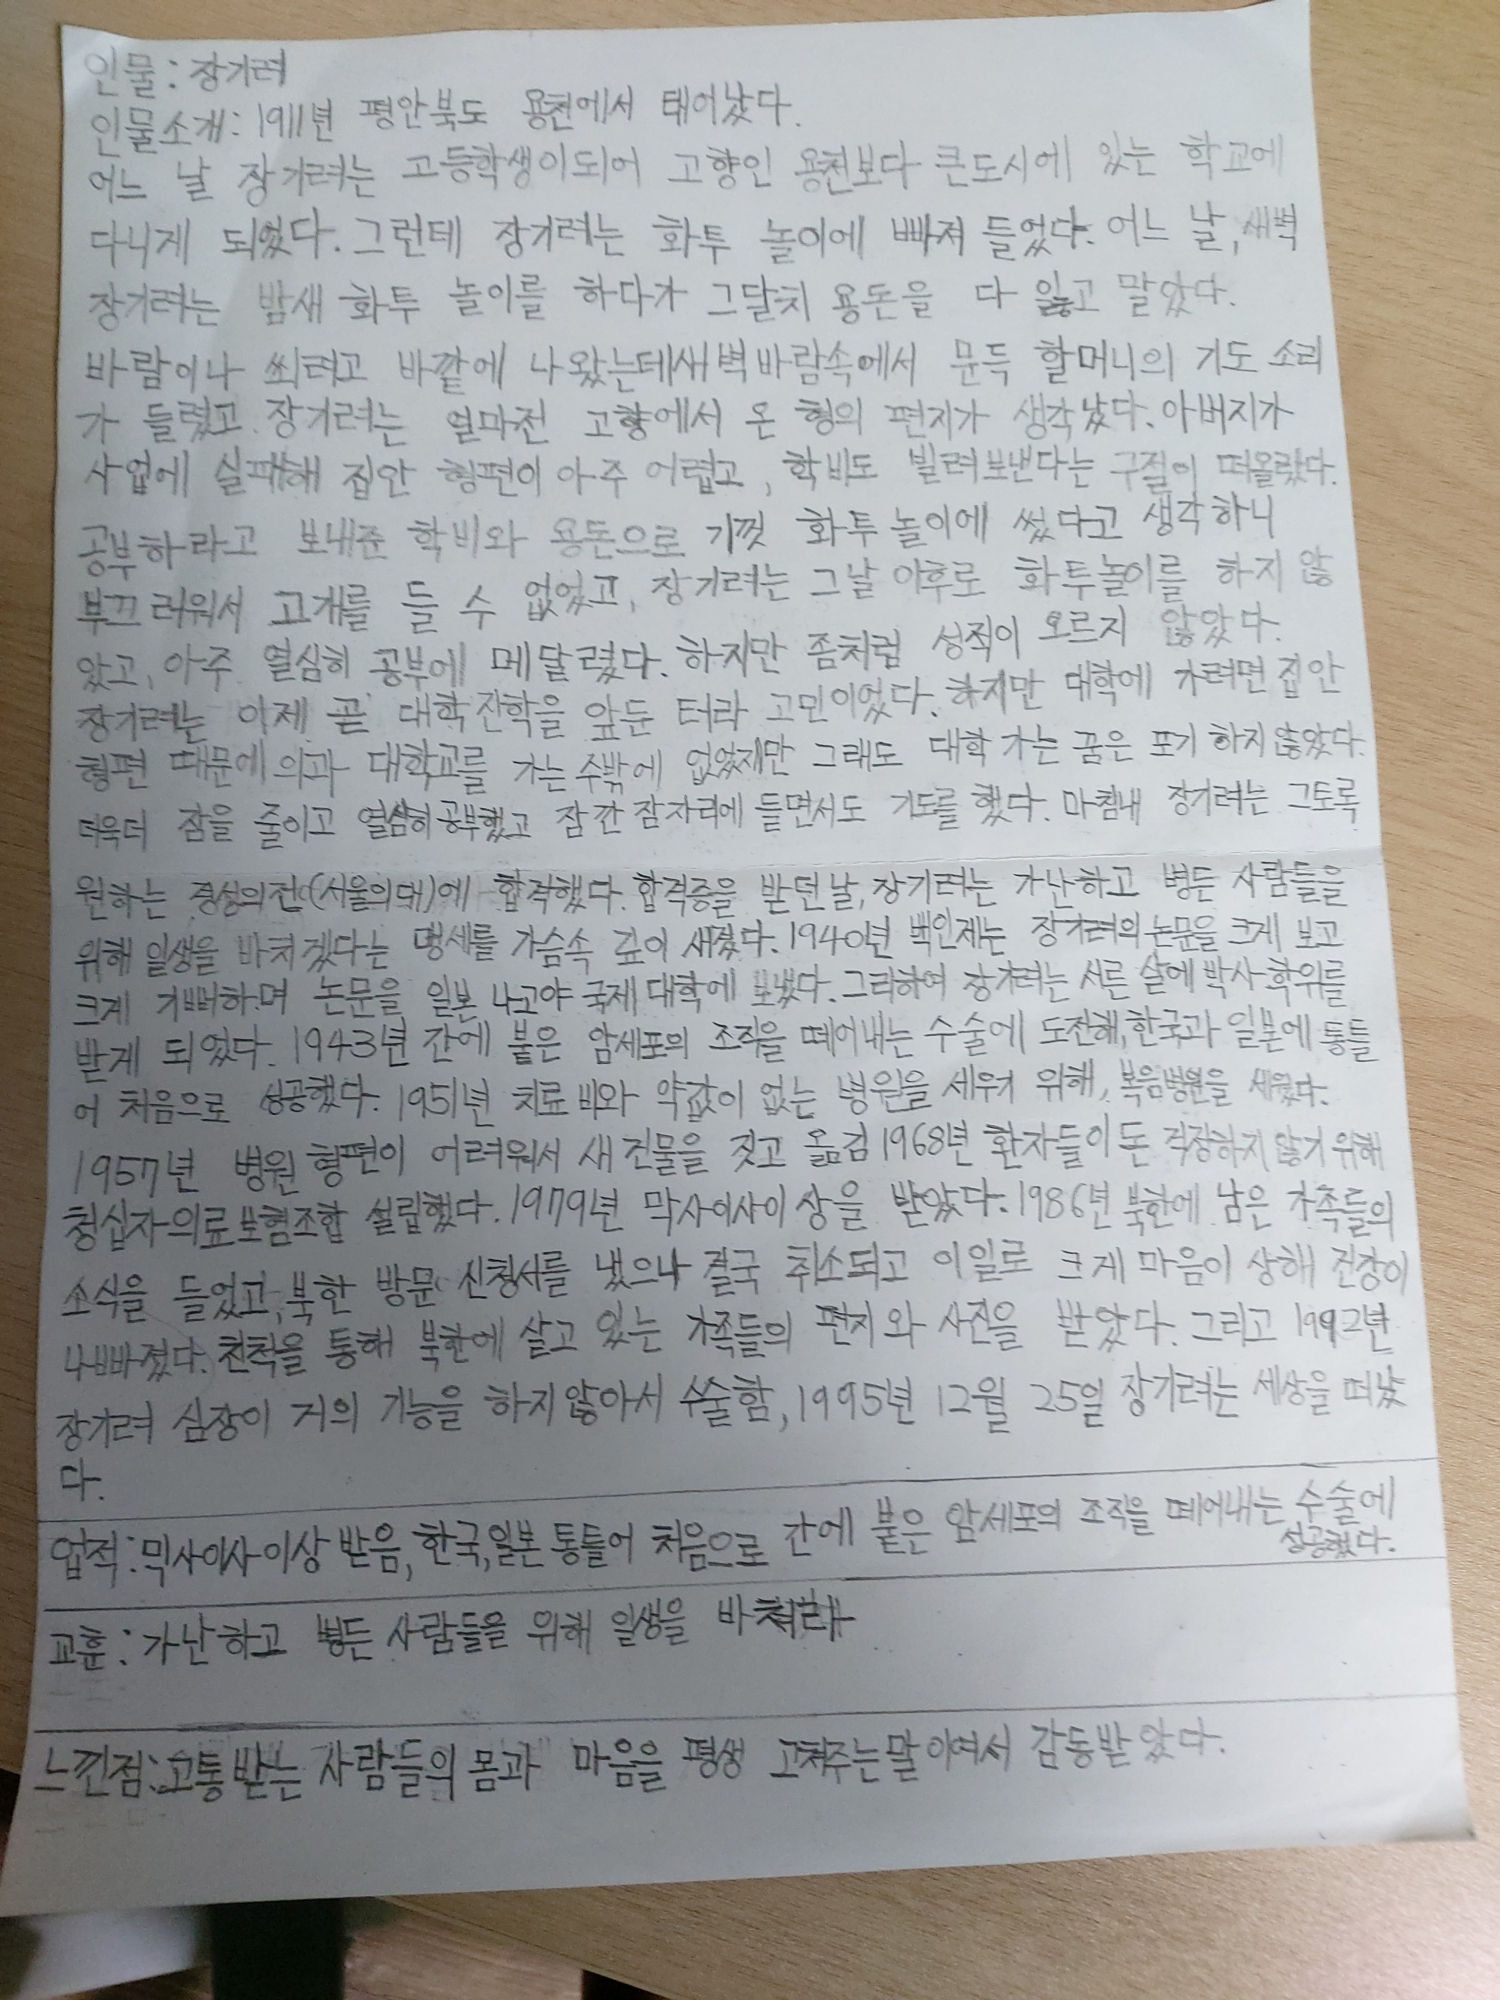 인물 : 장기려
인물소개 : 1911년 평안북도 용천에서 태어났다.
어느 날 장기려는 고등학생이되어 고향인 용천보다 큰도시에 있는 학교에
다니게 되었다. 그런데 장기려는 화투 놀이에 빠져 들었다. 어느 날, 새벽
장기려는 밤새 화투 놀이를 하다가 그달치 용돈을 다 잃고 말았다.
바람이나 쐬려고 바깥에 나왔는데새벽바람속에서 문득 할머니의 기도 소리
가 들렸고 장기려는 얼마전 고향에서 온 형의 편지가 생각났다. 아버지가
사업에 실패해 집안 형편이 아주 어렵고, 학비도 빌려보낸다는 구절이 떠올랐다.
공부하라고 보내준 학비와 용돈으로 기껏 화투 놀이에 썼다고 생각하니
부끄러워서 고개를 들 수 없었고, 장기려는 그날 이후로 화투놀이를 하지 않
았고, 아주 열심히 공부에 메달렸다. 하지만 좀처럼 성적이 오르지 않았다.
장기려는 이제 곧 대학진학을 앞둔 터라 고민이었다. 하지만 대학에 가려면 집안
형편 때문에 의과 대학교를 가는수밖에 없었지만 그래도 대학 가는 꿈은 포기 하지않았다.
더욱더 잠을 줄이고 열심히공부했고 잠깐 잠자리에 들면서도 기도를 했다. 마침내 장기려는 그토록
원하는 경성의전(서울의대)에 합격했다. 합격증을 받던날, 장기려는 가난하고 병든 사람들을
위해 일생을 바치겠다는 맹세를 가슴속 깊이 새겼다. 1940년 백인제는 장기려의 논문을 크게 보고
크게 기뻐하며 논문을 일본 나고야 국제 대학에 보냈다. 그리하여 장기려는 서른 살에 박사 학위를
받게 되었다. 1943년 간에 붙은 암세포의 조직을 떼어내는 수술에 도전해, 한국과 일본에 통틀
어 처음으로 성공했다. 1951년 치료비와 약값이 없는 병원을 세우기 위해, 복음병원을 세웠다.
1957년 병원 형편이 어려워서 새 건물을 짓고 옮김 1968년 환자들이 돈 걱정하지 않기 위해
청십자의료보험조합 설립했다. 1979년 막사이사이 상을 받았다. 1986년 북한에 남은 가족들의
소식을 들었고, 북한 방문 신청서를 냈으나 결국 취소되고 이일로 크게 마음이 상해 건강이
나빠졌다. 친척을 통해 북한에 살고 있는 가족들의 편지와 사진을 받았다. 그리고 1992년
장기려 심장이 거의 기능을 하지않아서 수술함, 1995년 12월 25일 장기려는 세상을 떠났
다.
업적 : 막사이사이상 받음, 한국, 일본 통틀어 처음으로 간에 붙은 암세포의 조직을 떼어내는 수술에
성공했다.
교훈 : 가난하고 병든 사람들을 위해 일생을
느낀점 : 고통받는 사람들의 몸과 마음을 평생 고쳐주는말 이여서 감동받았다.